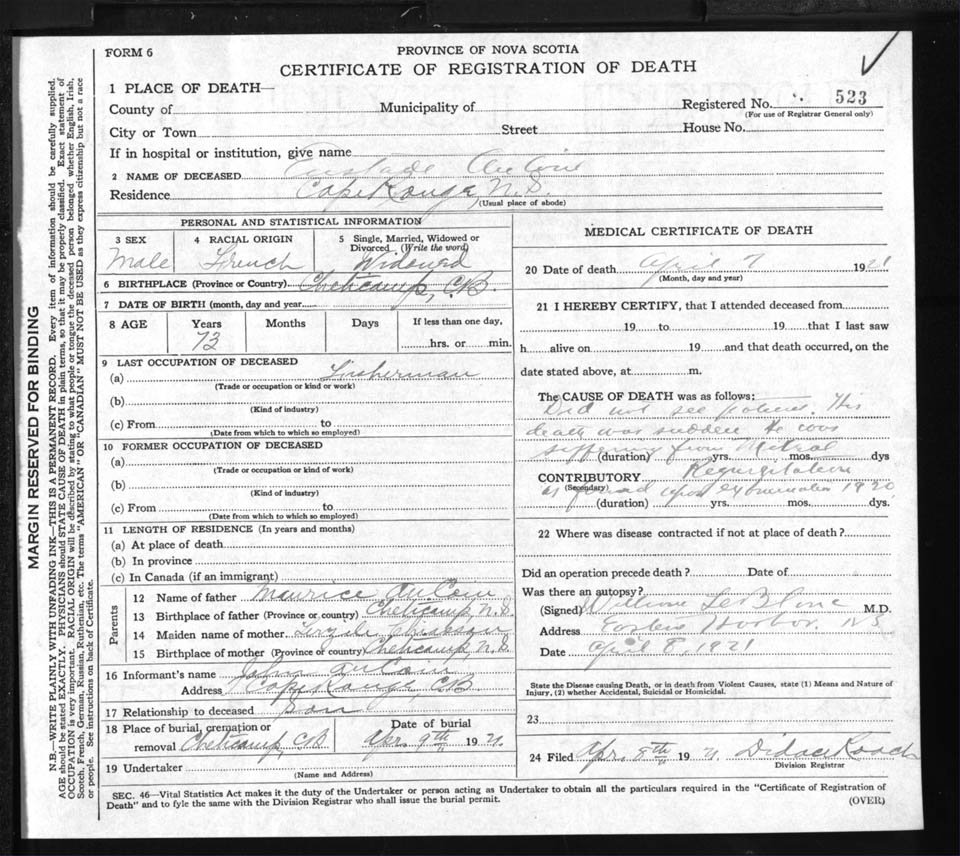 FORM 6
PROVINCE OF NOVA SCOTIA
CERTIFICATE OF REGISTRATION OF DEATH
1 PLACE OF DEATH—
County of Municipality of Registered No. 523
(For use of Registrar General only)
City or Town Street House No.
If in hospital or institution, give name
2 NAME OF DECEASED
Residence Cape Rouge, N.S.
(Usual place of abode)
PERSONAL AND STATISTICAL INFORMATION
3 SEX Male
4 RACIAL ORIGIN French
5 Single, Married, Widowed or
Divorced (Write the word)
Widowed
6 BIRTHPLACE (Province or Country) Cheticamp, C.B.
7 DATE OF BIRTH (month, day and year)
8 AGE Years Months Days If less than one day,
73 hrs. or min.
9 LAST OCCUPATION OF DECEASED
(a) Fisherman
(Trade or occupation or kind or work)
(b)
(Kind of industry)
(c) From to
(Date from which to which so employed)
10 FORMER OCCUPATION OF DECEASED
(a)
(Trade or occupation or kind of work)
(b)
(Kind of industry)
(c) From to
(Date from which to which so employed)
11 LENGTH OF RESIDENCE (In years and months)
(a) At place of death
(b) In province
(c) In Canada (if an immigrant)
Parents
12 Name of father Maurice AuCoin
13 Birthplace of father (Province or country) Cheticamp, N.S.
14 Maiden name of mother
15 Birthplace of mother (Province or country) Cheticamp, N.S.
16 Informant's name John AuCoin
Address Cape Rouge, C.B.
17 Relationship to deceased Son
18 Place of burial, cremation or
removal Cheticamp, C.B.
Date of burial
Apr. 9th 1921.
19 Undertaker
(Name and Address)
MEDICAL CERTIFICATE OF DEATH
20 Date of death April 7 1921
(Month, day and year)
21 I HEREBY CERTIFY, that I attended deceased from
19 to 19 that I last saw
h alive on 19 and that death occurred, on the
date stated above, at m.
The CAUSE OF DEATH was as follows:
Did not see patient. His
death was sudden. He was
suffering from Mitral
(duration) yrs. mos. dys
CONTRIBUTORY Regurgitation
(Secondary)
as found upon examination 1920
(duration) yrs. mos. dys.
22 Where was disease contracted if not at place of death?
Did an operation precede death? Date of
Was there an autopsy?
(Signed) William LeBlanc M.D.
Address Eastern Harbor, N.S.
Date April 8, 1921
State the Disease causing Death, or in death from Violent Causes, state (1) Means and Nature of
Injury, (2) whether Accidental, Suicidal or Homicidal.
23
24 Filed Apr. 8th 1921. Didace Roach
Division Registrar
SEC. 46—Vital Statistics Act makes it the duty of the Undertaker or person acting as Undertaker to obtain all the particulars required in the "Certificate of Registration of
Death" and to fyle the same with the Division Registrar who shall issue the burial permit.
(OVER)
MARGIN RESERVED FOR BINDING
N.B.—WRITE PLAINLY WITH UNFADING INK—THIS IS A PERMANENT RECORD. Every item of information should be carefully supplied.
AGE should be stated EXACTLY. PHYSICIANS should STATE CAUSE OF DEATH in plain terms, so that it may be properly classified. Exact statement of
OCCUPATION is very important. RACIAL ORIGIN will be described by stating to what people or tongue the deceased person belonged whether English, Irish,
Scotch, French, German, Russian, Ruthenian, etc. The terms "AMERICAN" OR "CANADIAN" MUST NOT BE USED as they express citizenship but not a race
or people. See instructions on back of Certificate.